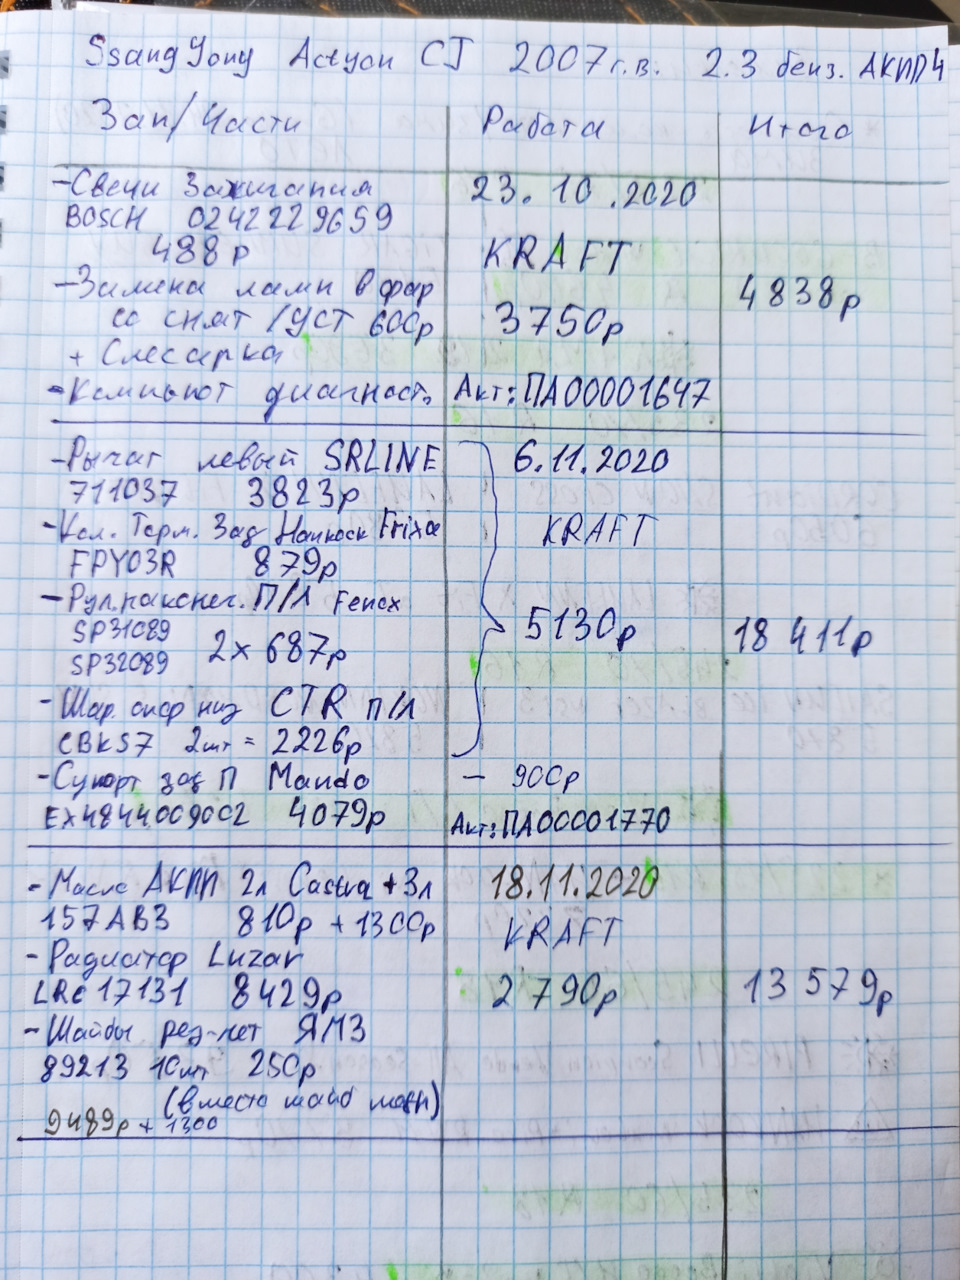 SsangYong Actyon CJ 2007г.в. 2.3 бенз. АКПП4
Зап/Части Работа Итого
-Свечи Зажигания
BOSCH 0242229659
488р
-Замена ламп в фар
со снят/уст 600р
+ Слесарка
-Компьют диагност.
23.10.2020
KRAFT
3750р
Акт: ПА00001647
4838р
-Рычаг левый SRLINE
711037 3823р
-Кол. Торм. Зад Hankook Frixa
FPY03R 879р
-Рул.наконеч. П/Л Fenox
SP31089
SP32089 2х 687р
-Шар. опор низ CTR П/Л
CBKS7 2шт = 2226р
-Супорт зад П Mando - 900р
EX4844009002 4079р
6.11.2020
KRAFT
5130р
Акт: ПА00001770
18 411р
-Масло АКПП 2л Castro +3л
157AB3 810р +1300р
-Радиатор Luzar
LRc 17131 8429р
-Шайбы рез-мет ЯМЗ
89213 10шт 250р
(вместо шайб
9489р + 1300
18.11.2020
KRAFT
2 790р
13 579р